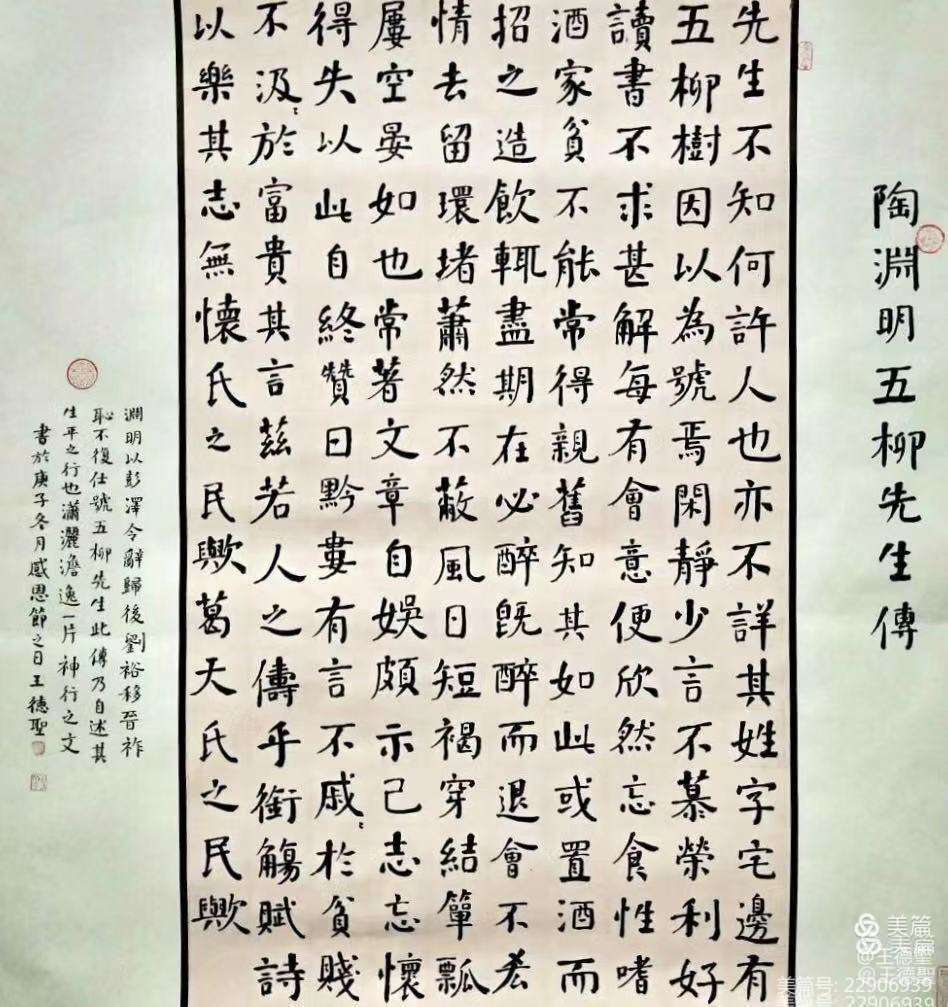 陶淵明五柳先生傳
先生不知何許人也亦不詳其姓字宅邊有
五柳樹因以為號焉閑靜少言不慕榮利好
讀書不求甚解每有會意便欣然忘食性嗜
酒家貧不能常得親舊知其如此或置酒而
招之造飲輒盡期在必醉既醉而退會不吝
情去留環堵蕭然不蔽風日短褐穿結簞瓢
屢空晏如也常著文章自娛頗示己志忘懷
得失以此自終贊曰黔婁有言不戚〻於貧賤
不汲〻於富貴其言茲若人之儔乎銜觴賦詩
以樂其志無懷氏之民歟葛天氏之民歟
淵明以彭澤令辭歸後劉裕移晉祚
恥不復仕號五柳先生此傳乃自述其
生平之行也瀟灑澹逸一片神行之文
書於庚子冬月感恩節之日王德聖
美篇
美篇
@王德聖
@王德聖
美篇号: 22906939
美篇号: 22906939